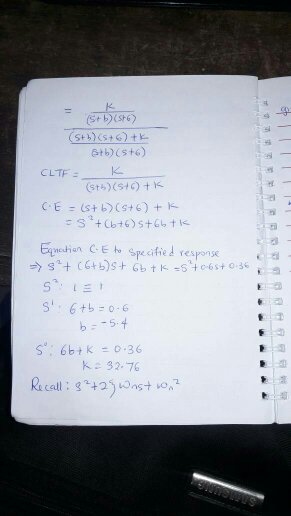 = K / (s+b)(s+6)
(s+b)(s+6)+K / (s+b)(s+6)
CLTF = K / (s+b)(s+6)+K
C.E = (s+b)(s+6) + K
= S²+(b+6)s+6b+K
Equation C.E to specified response
⇒ S²+ (6+b)s+ 6b+K = S²+0.6s+0.36
S²: 1 ≡ 1
S¹: 6+b = 0.6
b = -5.4
S⁰: 6b+K = 0.36
K = 32.76
Recall: S²+2ζωns+ωn²